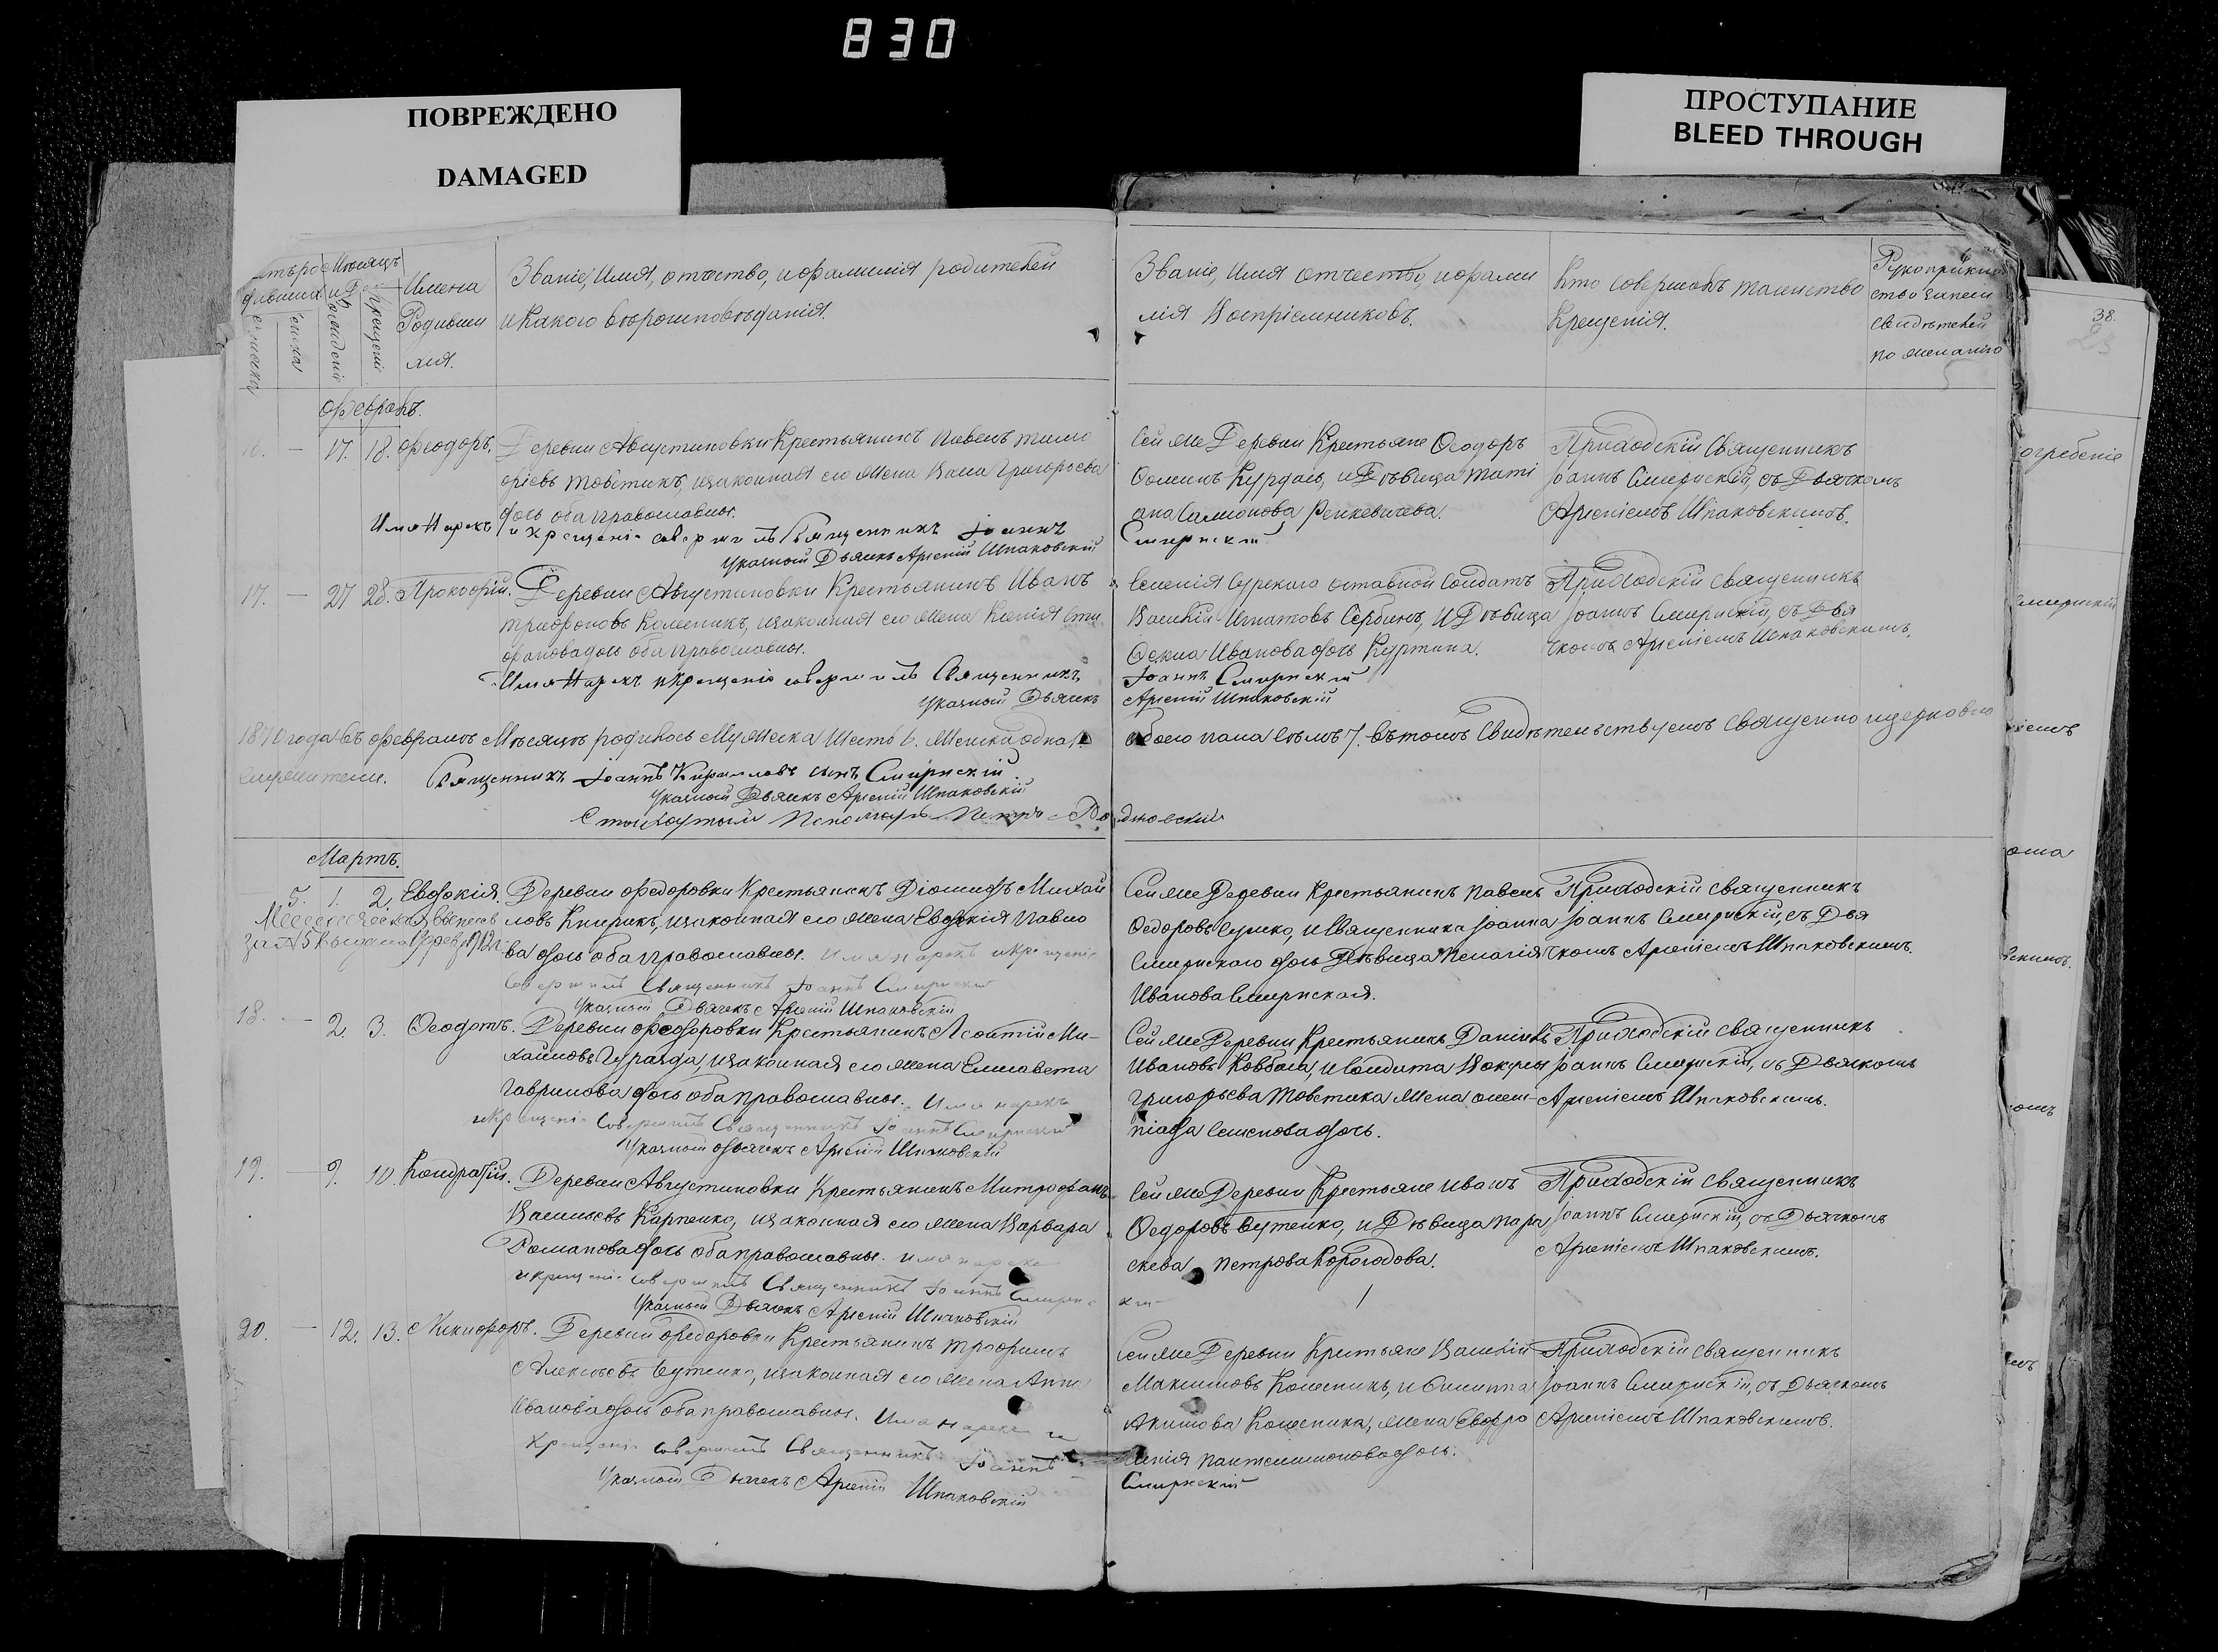 830
ПОВРЕЖДЕНО
DAMAGED
ПРОСТУПАНИЕ
BLEED THROUGH
Мѣсяцъ
Имена
Родивши
мся.
Званіе, Имя, отчество, и фамилія родителей
и какого вѣроисповѣданія.
Званіе, Имя отчество, и фами
лія Воспріемниковъ.
Кто совершалъ таинство
Крещенія.
свидѣтелей
по желанію
38.
Февраль.
16. — 17. 18. Феодоръ.
Деревни Августиновки Крестьянинъ Павелъ Тимо
фіевъ Товстикъ, и законная его жена Васса Григорьева
дочь оба православны.
Имя Нарекъ и крещеніе совершилъ Священникъ Іоаннъ
Смирнскій
Указной Дьячекъ Арсеній Шпаковскій
Сей же Деревни Крестьяне Феодоръ
Фоминъ Курдась, и Дѣвица Тати
ана Самсонова Ренкевичева.
Приходскій Священникъ
Іоаннъ Смирнскій, съ Дьячкомъ
Арсеніемъ Шпаковскимъ.
17. — 27 28. Прокофій.
Деревни Августиновки Крестьянинъ Иванъ
Трифоновъ Колесникъ, и законная его жена Ксенія Сти
фанова дочь оба православны.
Имя Нарекъ и Крещеніе совершилъ Священникъ
Іоаннъ Смирнскій
Указной Дьячекъ
Арсеній Шпаковскій
Селенія Сурскаго отставной Солдатъ
Василій Игнатовъ Сербинъ, и Дѣвица
Фекла Иванова дочь Куртина.
Приходскій Священникъ
Іоаннъ Смирнскій, съ Дья
чкомъ Арсеніемъ Шпаковскимъ.
1870 года въ Февралѣ Мѣсяцѣ родилось Мужеска Шесть 6. Женска одна 1.
обоего пола семь 7. Въ томъ Свидѣтельствуемъ Священно и церковно
служители. Священникъ Іоаннъ Кирилловъ сынъ Смирнскій.
Указной Дьячекъ Арсеній Шпаковскій
Пономарь Петръ
Мартъ.
5. 1. 2. Евдокія.
Деревни Федоровки Крестьянинъ Діомидъ Михай
ловъ Книрикъ, и законная его жена Евдокія Павло
ва дочь оба православны. Имя нарекъ и крещеніе
совершилъ Священникъ Іоаннъ Смирнскій
Указной Дьячекъ Арсеній Шпаковскій
за № 5 выдана 1912 г.
Сей же Деревни Крестьянинъ Павелъ
Федоровъ Сушко, и Священника Іоанна
Смирнскаго дочь Дѣвица Пелагія
Иванова Смирнская.
Приходскій Священникъ
Іоаннъ Смирнскій, съ Дья
чкомъ Арсеніемъ Шпаковскимъ.
18. — 2. 3. Феодотъ.
Деревни Феодоровки Крестьянинъ Леонтій Ми-
хайловъ Гуразда, и законная его жена Елисавета
Гаврилова дочь оба православны. Имя нарекъ
и крещеніе совершилъ Священникъ Іоаннъ Смирнскій
Указной дьячекъ Арсеній Шпаковскій
Сей же Деревни Крестьянинъ Даніилъ
Ивановъ Ковбаса, и Солдата
Григорьева Товстика жена
Семенова дочь.
Приходскій Священникъ
Іоаннъ Смирнскій, съ Дьячкомъ
Арсеніемъ Шпаковскимъ.
19. — 9. 10. Кондратій.
Деревни Августиновки Крестьянинъ Митрофанъ
Васильевъ Карпенко, и законная его жена Варвара
Романова дочь оба православны. Имя нарекъ
и крещеніе совершилъ Священникъ Іоаннъ Смирн
скій
Указный Дьячекъ Арсеній Шпаковскій
Сей же Деревни Крестьяне Иванъ
Федоровъ Бутенко, и Дѣвица Пара
скева Петрова Корогодова.
Приходскій Священникъ
Іоаннъ Смирнскій, съ Дьячкомъ
Арсеніемъ Шпаковскимъ.
20. — 12. 13. Никифоръ.
Деревни Федоровки Крестьянинъ Трофимъ
Алексѣевъ Бутенко, и законная его жена Анна
Иванова дочь оба православны. Имя нарекъ и
крещеніе совершилъ Священникъ Іоаннъ
Смирнскій
Указной Дьячекъ Арсеній Шпаковскій
Сей же Деревни Крестьяне Василій
Максимовъ Колесникъ, и Филиппа
Акимова Колесника, жена Евфро
синія Пантелимонова дочь.
Приходскій Священникъ
Іоаннъ Смирнскій, съ Дьячкомъ
Арсеніемъ Шпаковскимъ.